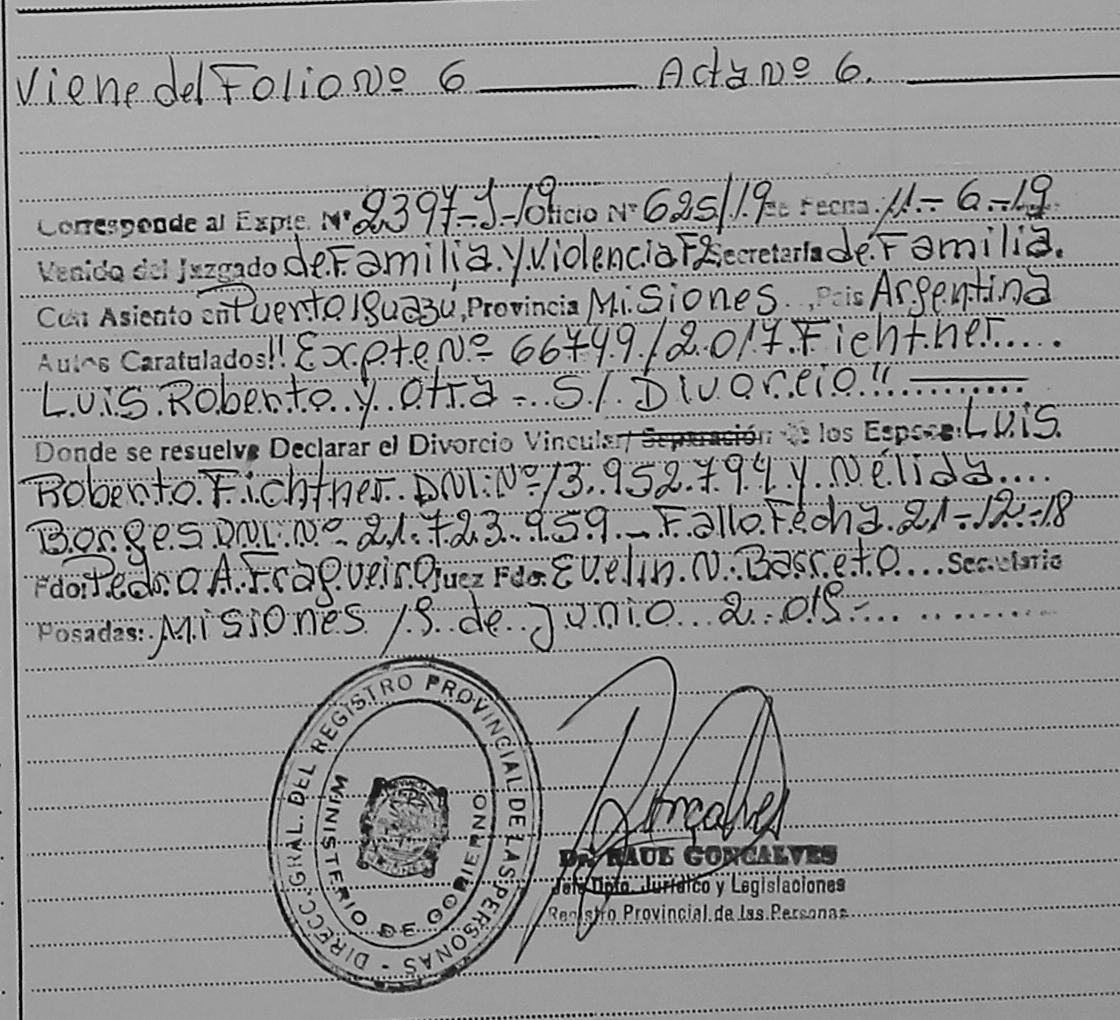 Viene del Folio Nº 6 Acta Nº 6.
Corresponde al Expte. Nº 2397-J-19 Oficio Nº 625/19 de Fecha 11-6-19
Venido del Juzgado de Familia y Violencia F2 Secretaría de Familia.
Con Asiento en Puerto Iguazú, Provincia Misiones País Argentina
Autos Caratulados!! Expte Nº 66749/2017 Fichtner
Luis Roberto y Otra - S/ Divorcio!!
Donde se resuelve Declarar el Divorcio Vincular/ Separación de los Esposos: Luis
Roberto Fichtner DNI: Nº 13.952.794 y Nélida
Borges DNI. Nº 21.723.959 - Fallo Fecha 21-12-18
Fdo: Pedro A. Fragueiro Juez Fdo: Evelin N. Barreto Secretaria
Posadas: Misiones 19 de Junio 2.019-
DIRECC. GRAL. DEL REGISTRO PROVINCIAL DE LAS PERSONAS -
MINISTERIO DE GOBIERNO
Goncalves
Dr. RAUL GONCALVES
Jefe Dpto. Jurídico y Legislaciones
Registro Provincial de las Personas